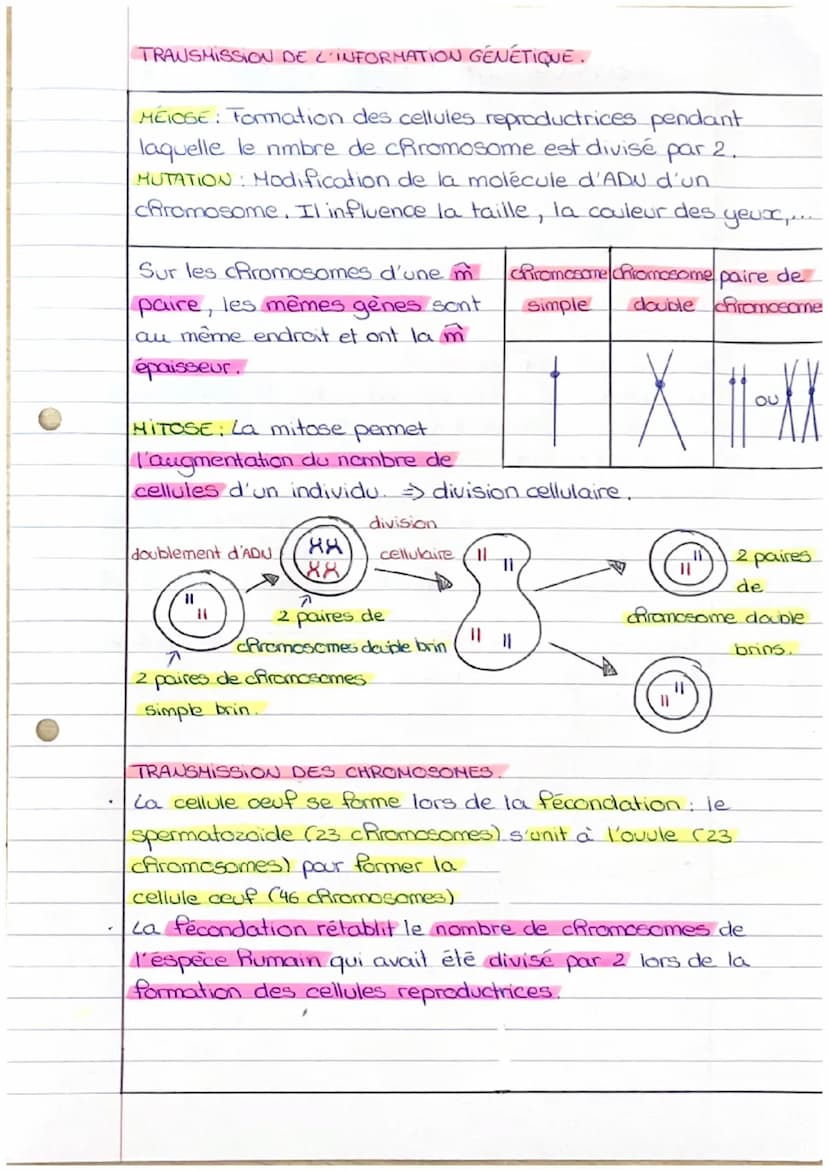 TRANSMISSION DE L'INFORMATION GÉNÉTIQUE.
MÉIOSE : Formation des cellules reproductrices pendant
laquelle le nmbre de chromosome est divisé par 2.
MUTATION : Modification de la molécule d'ADN d'un
chromosome. Il influence la taille, la couleur des yeux,...
Sur les chromosomes d'une m̂
paire, les mêmes gènes sont
au même endroit et ont la m̂
épaisseur.
chromosome simple
chromosome double
paire de chromosome
OU
MITOSE : La mitose permet
l'augmentation du nombre de
cellules d'un individu. => division cellulaire.
doublement d'ADN
division
cellulaire
2 paires de
chromosomes double brin
2 paires de chromosomes
simple brin.
2 paires
de
chromosome double
brins.
TRANSMISSION DES CHROMOSOMES.
· La cellule oeuf se forme lors de la fécondation : le
spermatozoïde (23 chromosomes) s'unit à l'ovule (23
chromosomes) pour former la
cellule oeuf (46 chromosomes)
· La fécondation rétablit le nombre de chromosomes de
l'éspèce humain qui avait été divisé par 2 lors de la
formation des cellules reproductrices.